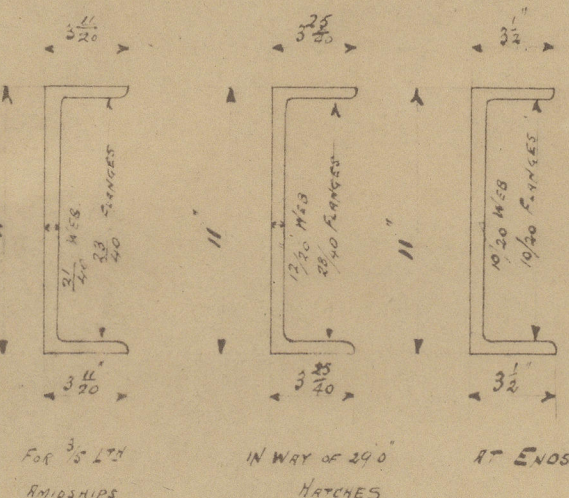 3 11/20
3 25/40
3 1/2"
21/40 WEB
23/40 FLANGES
11"
12/20 WEB
23/40 FLANGES
11"
10/20 WEB
10/20 FLANGES
3 11/20"
3 25/40
3 1/2"
FOR 3/5 LTH
AMIDSHIPS
IN WAY OF 29'0"
HATCHES
AT ENDS